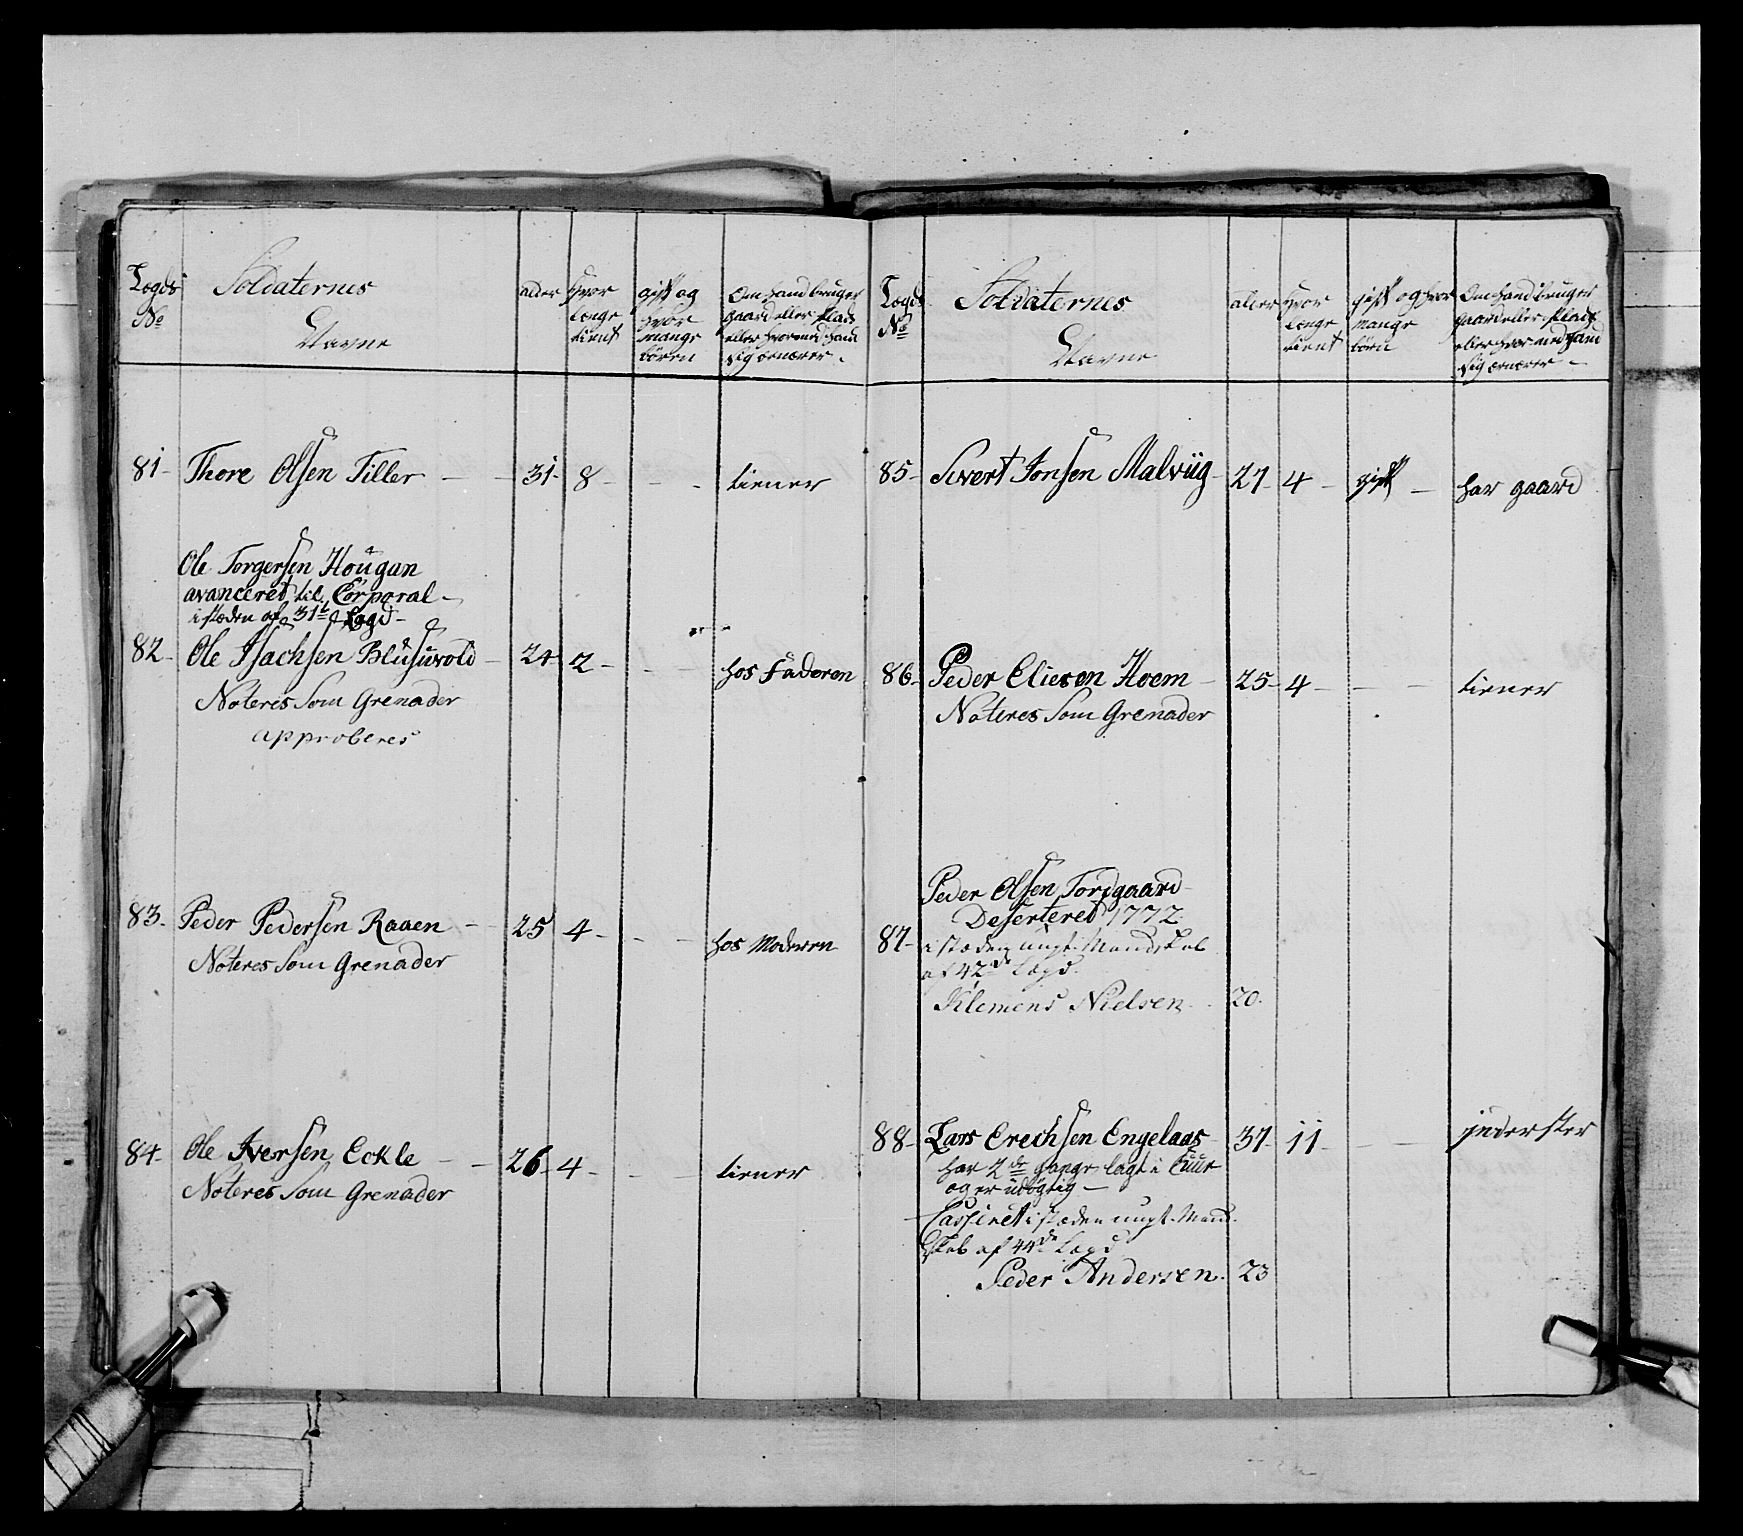 Legds No
Soldaternes
Navne
alder
hvor
længe
tient
gift og
hvor
mange
børen
Om hand bruger
gaard eller plads
eller hvormed hand
sig ernærer
81 Thore Olsen Tiller 31 8 tiener
Ole Torgersen Hougan
avanceret til Corporal
i stæden af 31te Lægd
82 Ole Isachsen Blusuvold 24 2 hos Faderen
Noteres Som Grenader
approberes
83 Peder Pedersen Raaen 25 4 hos Moderen
Noteres Som Grenader
84 Ole Iversen Eckle 26 4 tiener
Noteres Som Grenader
Legds No
Soldaternes
Navne
alder
hvor
længe
tient
gift og hvor
mange
børn
Om hand bruger
gaard eller plads
eller hvor med hand
sig ernærer
85 Sivert Jonsen Malviig 27 4 gift har gaard
86 Peder Eliesen Hoem 25 4 tiener
Noteres Som Grenader
Peder Olsen Torsgaard
Deserteret 1772
87 i stæden ungt Mandskab
af 42de Lægd
Klemens Nielsen 20
88 Lars Erechsen Engelaas 37 11 inderster
har 2de gange lagt i Cuur
og er udögtig
Casseret i stæden ungt Mand
skab af 44de Lægd
Peder Andersen 23